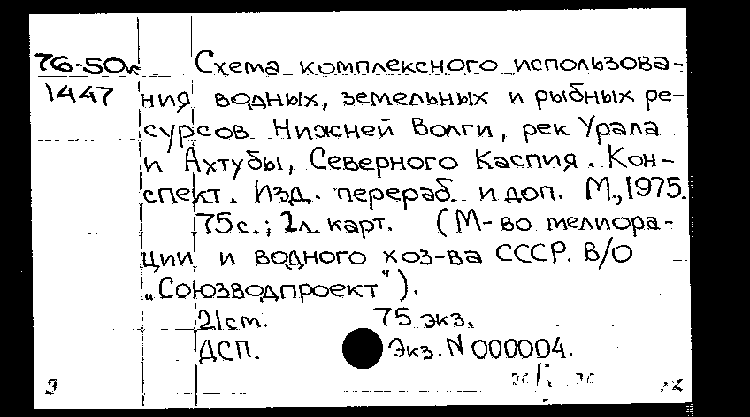 76-50л Схема комплексного использова-
1447 ния водных, земельных и рыбных ре-
сурсов Нижней Волги, рек Урала
и Ахтубы, Северного Каспия. Кон-
спект. Изд. перераб. и доп. М., 1975.
75с.; 2л. карт. (М-во мелиора-
ции и водного хоз-ва СССР. В/О
„Союзводпроект").
21см. 75 экз.
ДСП. Экз. N 000004.